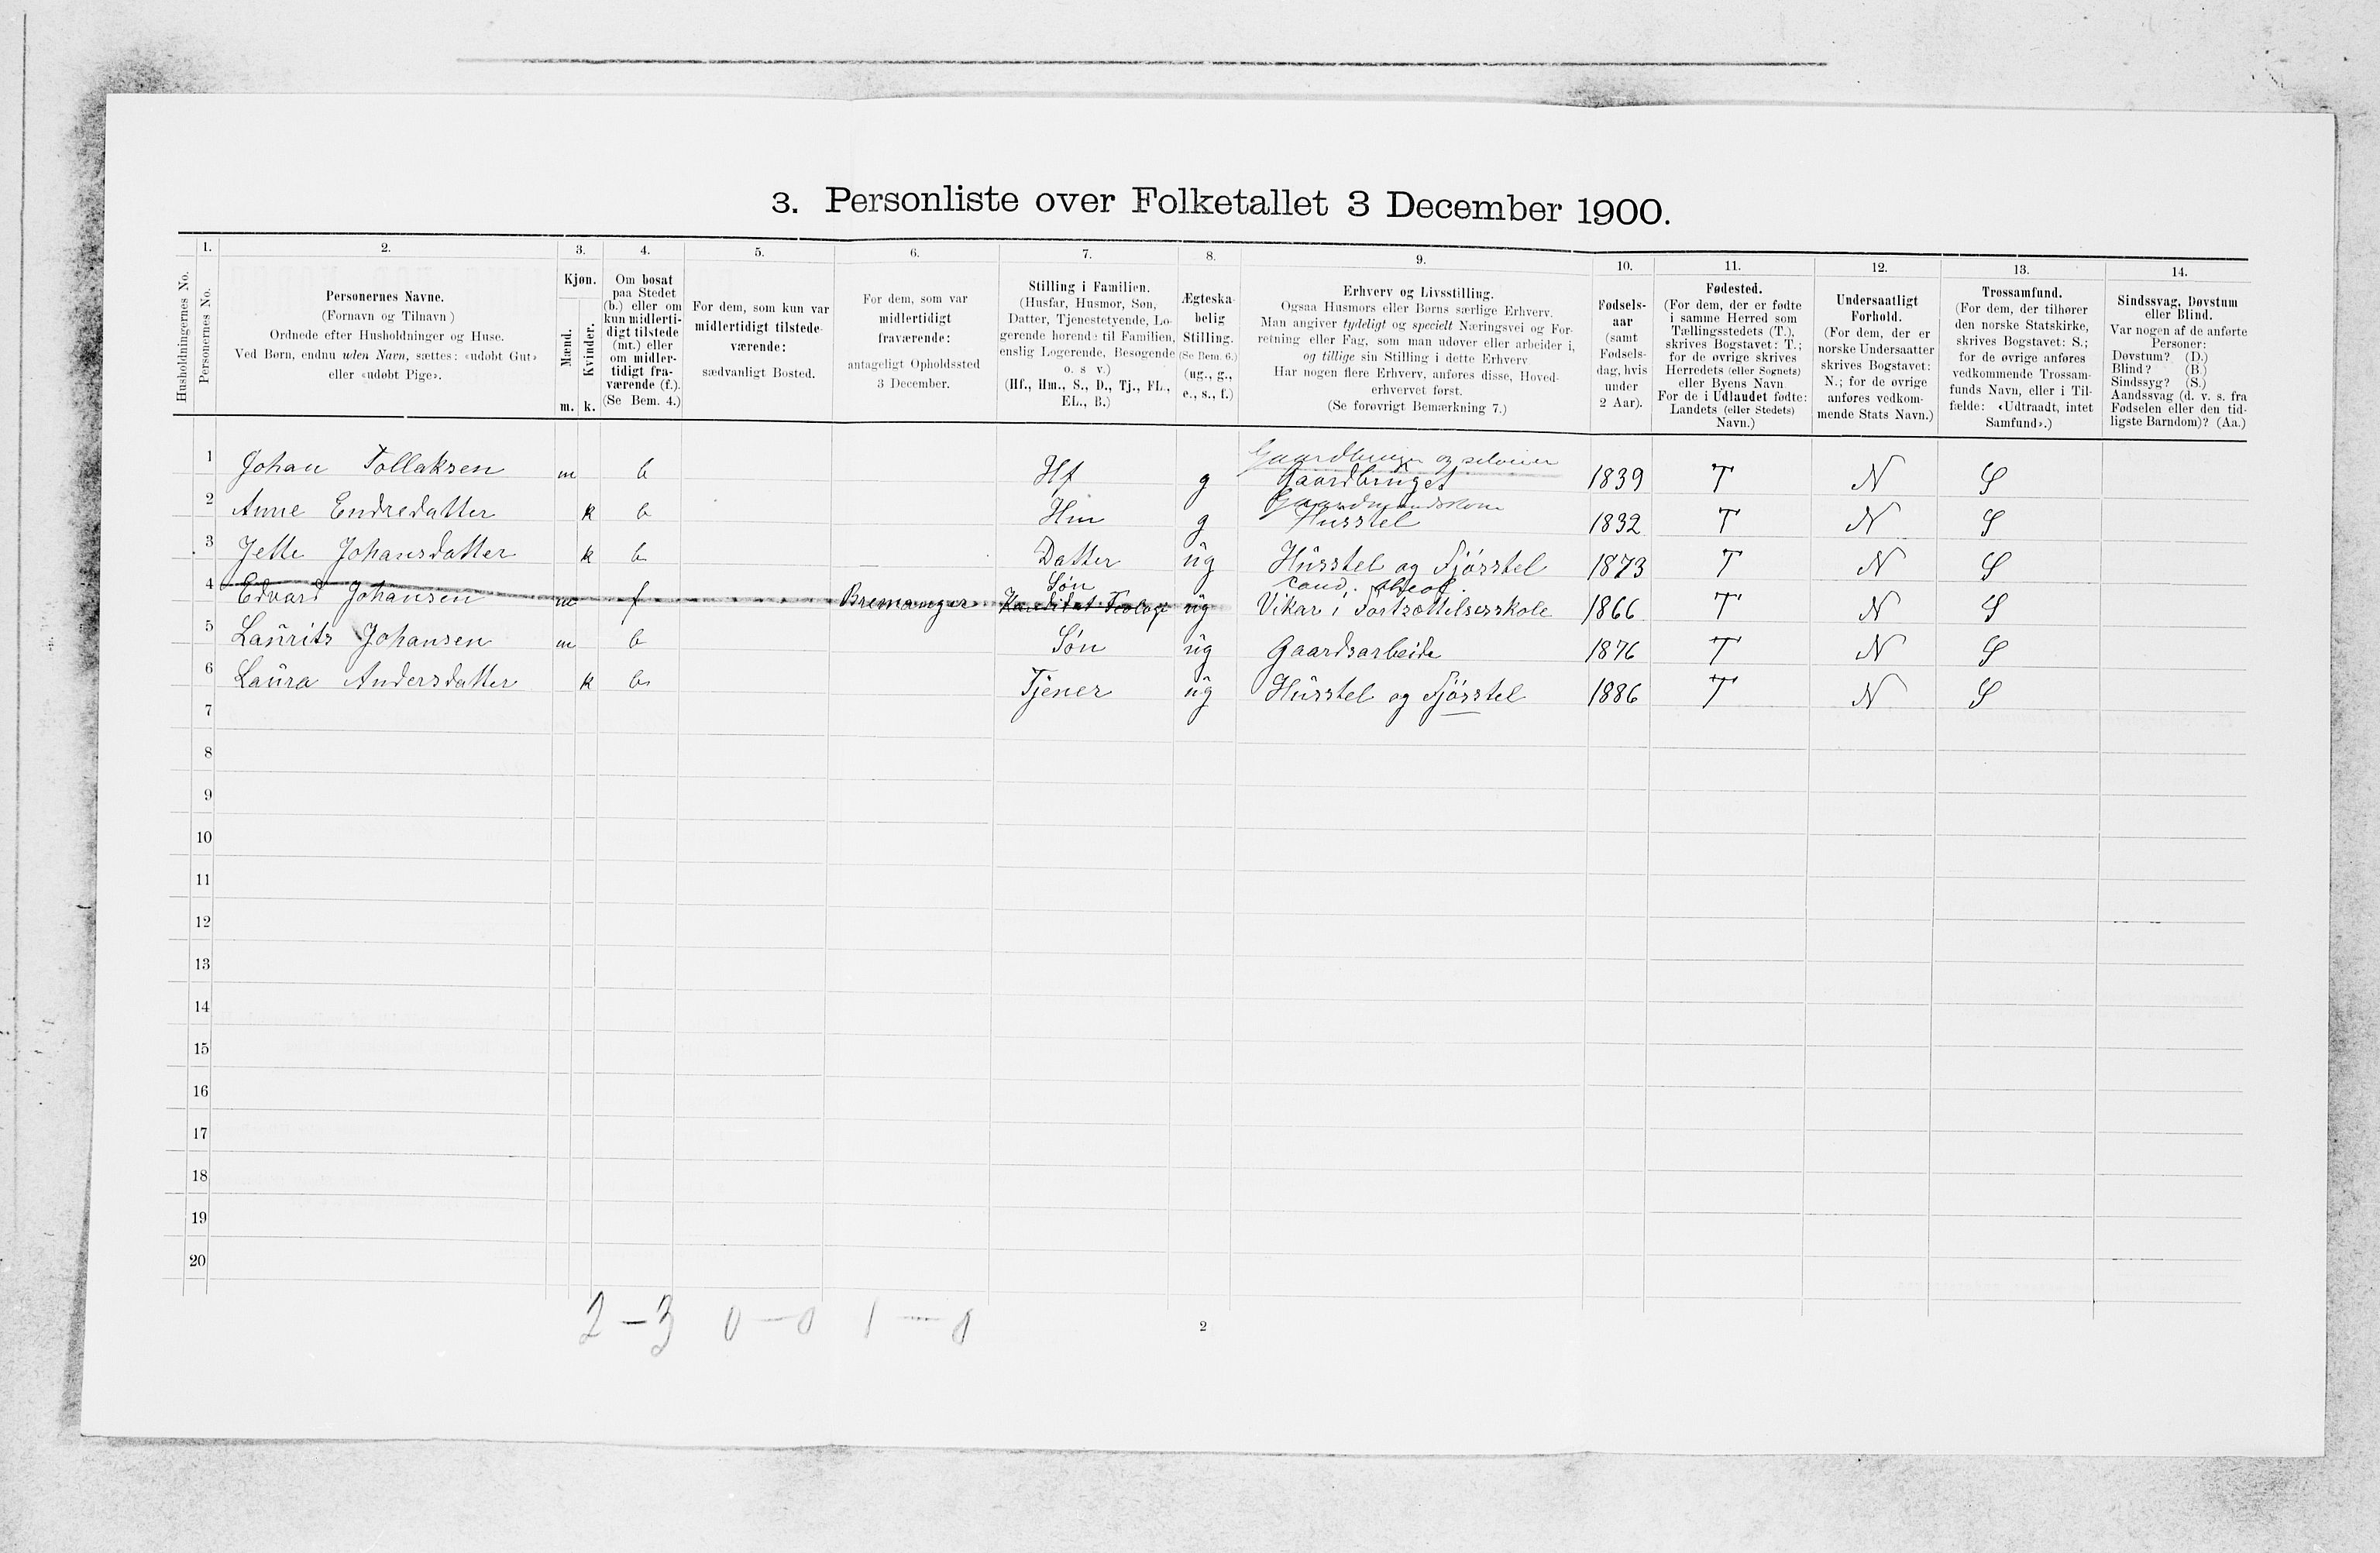 3. Personliste over Folketallet 3 December 1900.
1. 2. 3. 4. 5. 6. 7. 8. 9. 10. 11. 12. 13. 14.
Husholdningernes No.
Personernes No.
Personernes Navne.
(Fornavn og Tilnavn )
Ordnede efter Husholdninger og Huse.
Ved Børn, endnu uden Navn, sættes: «udøbt Gut»
eller «udøbt Pige».
Kjøn.
Mænd.
Kvinder.
m. k.
Om bosat
paa Stedet
(b.) eller om
kun midlerti-
digt tilstede
(mt.) eller
om midler-
tidigt fra-
værende (f.).
(Se Bem. 4.)
For dem, som kun var
midlertidigt tilstede-
værende:
sædvanligt Bosted.
For dem, som var
midlertidigt
fraværende:
antageligt Opholdssted
3 December.
Stilling i Familien.
(Husfar, Husmor, Søn,
Datter, Tjenestetyende, Lo-
gerende hørende til Familien,
enslig Logerende, Besøgende
o. s v.)
(Hf., Hm., S., D., Tj., FL.,
EL., B.)
Ægteska-
belig
Stilling.
(Se Bem. 6.)
(ug., g.,
e., s., f.)
Erhverv og Livsstilling.
Ogsaa Husmors eller Børns særlige Erhverv.
Man angiver tydeligt og specielt Næringsvei og For-
retning eller Fag, som man udøver eller arbeider i,
og tillige sin Stilling i dette Erhverv
Har nogen flere Erhverv, anføres disse, Hoved-
erhvervet først.
(Se forøvrigt Bemærkning 7.)
Fødsels-
aar
(samt
Fødsels-
dag, hvis
under
2 Aar).
Fødested.
(For dem, der er fødte
i samme Herred som
Tællingsstedets (T.),
skrives Bogstavet: T.;
for de øvrige skrives
Herredets (eller Sognets)
eller Byens Navn
For de i Udlandet fødte:
Landets (eller Stedets)
Navn.)
Undersaatligt
Forhold.
(For dem, der er
norske Undersaatter
skrives Bogstavet:
N.; for de øvrige
anføres vedkom-
mende Stats Navn.)
Trossamfund.
(For dem, der tilhører
den norske Statskirke,
skrives Bogstavet: S.;
for de øvrige anføres
vedkommende Trossam-
funds Navn, eller i Til-
fælde: «Udtraadt, intet
Samfund».)
Sindssvag, Døvstum
eller Blind.
Var nogen af de anførte
Personer:
Døvstum? (D.)
Blind? (B.)
Sindssyg? (S.)
Aandssvag (d. v. s. fra
Fødselen eller den tid-
ligste Barndom)? (Aa.)
Gaardbruger og selveier
1 Johan Tollaksen m b Hf g Gaardbruget 1839 T N S
Gaardmandskone
2 Anne Endredatter k b Hm g Husstel 1832 T N S
3 Jette Johansdatter k b Datter ug Husstel og Fjösstel 1873 T N S
Søn cand. theol.
4 Edvard Johansen m f Bremanger Kandidat Teologi ug Vikar i Fortsættelsesskole 1866 T N S
5 Laurits Johansen m b Søn ug Gaardsarbeide 1876 T N S
6 Laura Andersdatter k b Tjener ug Husstel og Fjösstel 1886 T N S
7
8
9
10
11
12
13
14
15
16
17
18
19
20
2 – 3 0 – 0 1 – 0
2